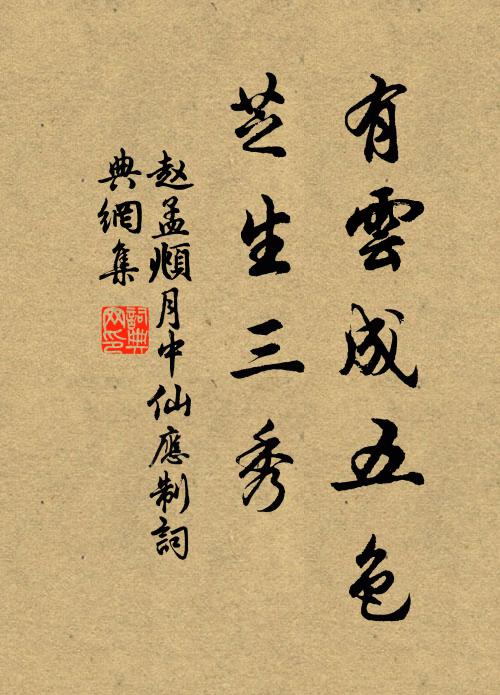 有雲成五色
芝生三秀
赵孟頫月中仙應制詞
典網集
詞典網印